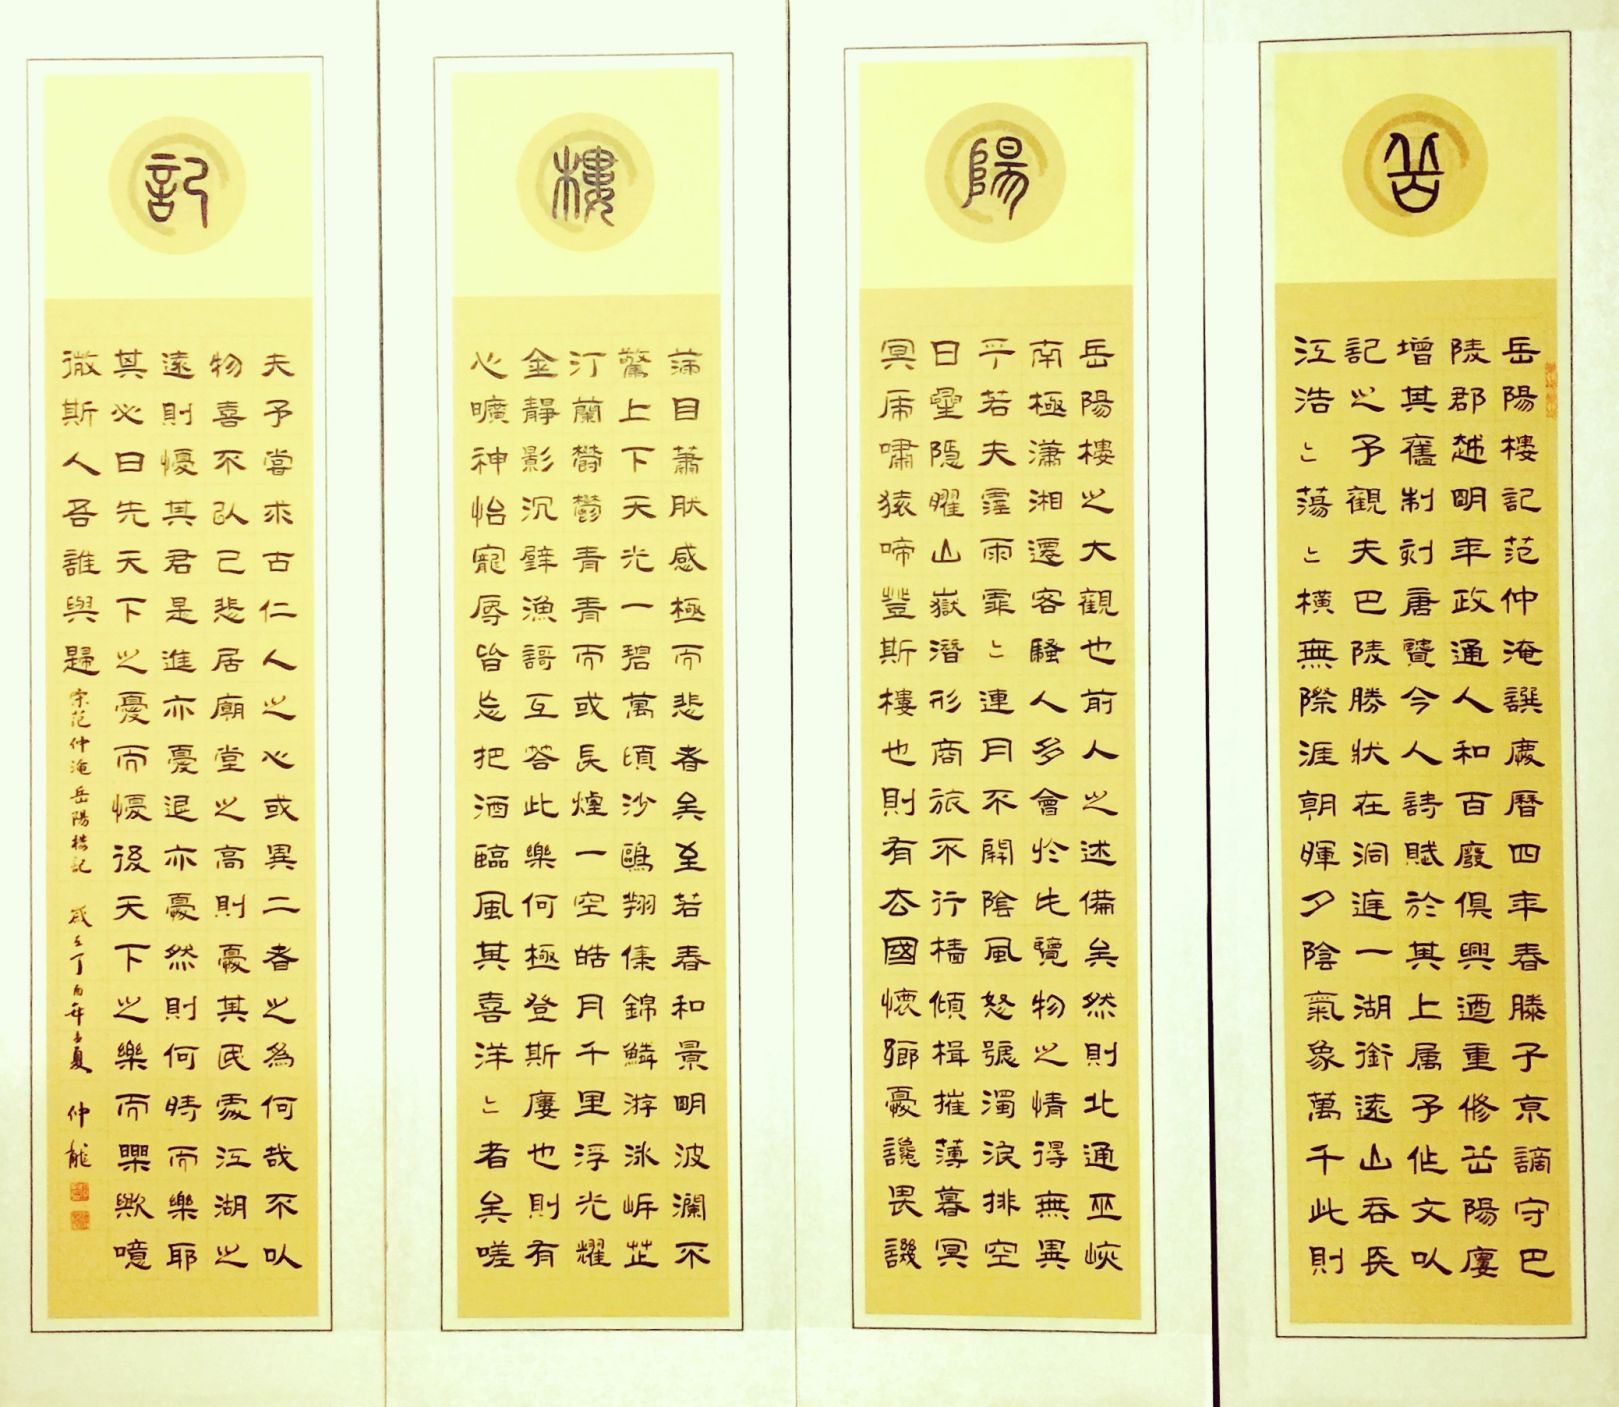 岳
岳陽樓記范仲淹譔慶曆四年春滕子京謫守巴
陵郡越眀年政通人和百廢俱興迺重修岳陽廔
增其舊制刻唐賢今人詩賦於其上属予作文以
記之予觀夫巴陵勝狀在洞庭一湖銜遠山吞長
江浩〻蕩〻橫無際涯朝暉夕陰氣象萬千此則
陽
岳陽樓之大觀也前人之述備矣然則北通巫峽
南極瀟湘遷客騷人多會於此覽物之情得無異
乎若夫霪雨霏〻連月不開陰風怒號濁浪排空
日星隱曜山嶽潛形商旅不行檣傾楫摧薄暮冥
冥虎嘯猿啼登斯樓也則有去國懷鄉憂讒畏譏
樓
滿目蕭肰感極而悲者矣至若春和景眀波瀾不
驚上下天光一碧萬頃沙鷗翔集錦鱗游泳岸芷
汀蘭鬱鬱青青而或長煙一空皓月千里浮光耀
金靜影沉璧漁謌互答此樂何極登斯廔也則有
心曠神怡寵辱皆忘把酒臨風其喜洋〻者矣嗟
記
夫予嘗求古仁人之心或異二者之為何哉不以
物喜不以己悲居廟堂之高則憂其民處江湖之
遠則懮其君是進亦憂退亦憂然則何時而樂耶
其必曰先天下之憂而懮後天下之樂而樂歟噫
微斯人吾誰與歸 宋范仲淹岳陽樓記 歲在丁酉年孟夏 仲龍